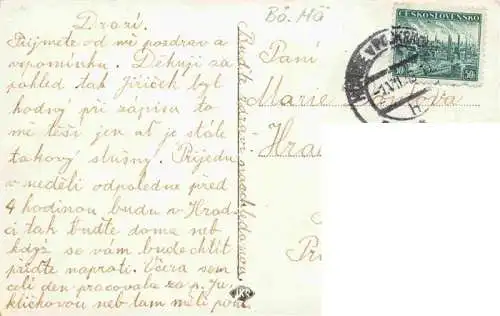 Drazí.
Přijmete od mě pozdrav a
vzpomínku. Děkuji za
pohled tak Jiříček byl
hodný při zápisu to
mě těší jen ať je stále
takový slušný. Přijedu
v neděli odpoledne před
4 hodinou budu v Hrad-
ci tak buďte doma neb
když se vám bude chtít
přiďte naproti. Včera sem
celí den pracovala za p. Ju-
kličkovou neb tam měli
Buďte zdrávi
Paní
Marie
Hrad
ČESKOSLOVENSKO
50